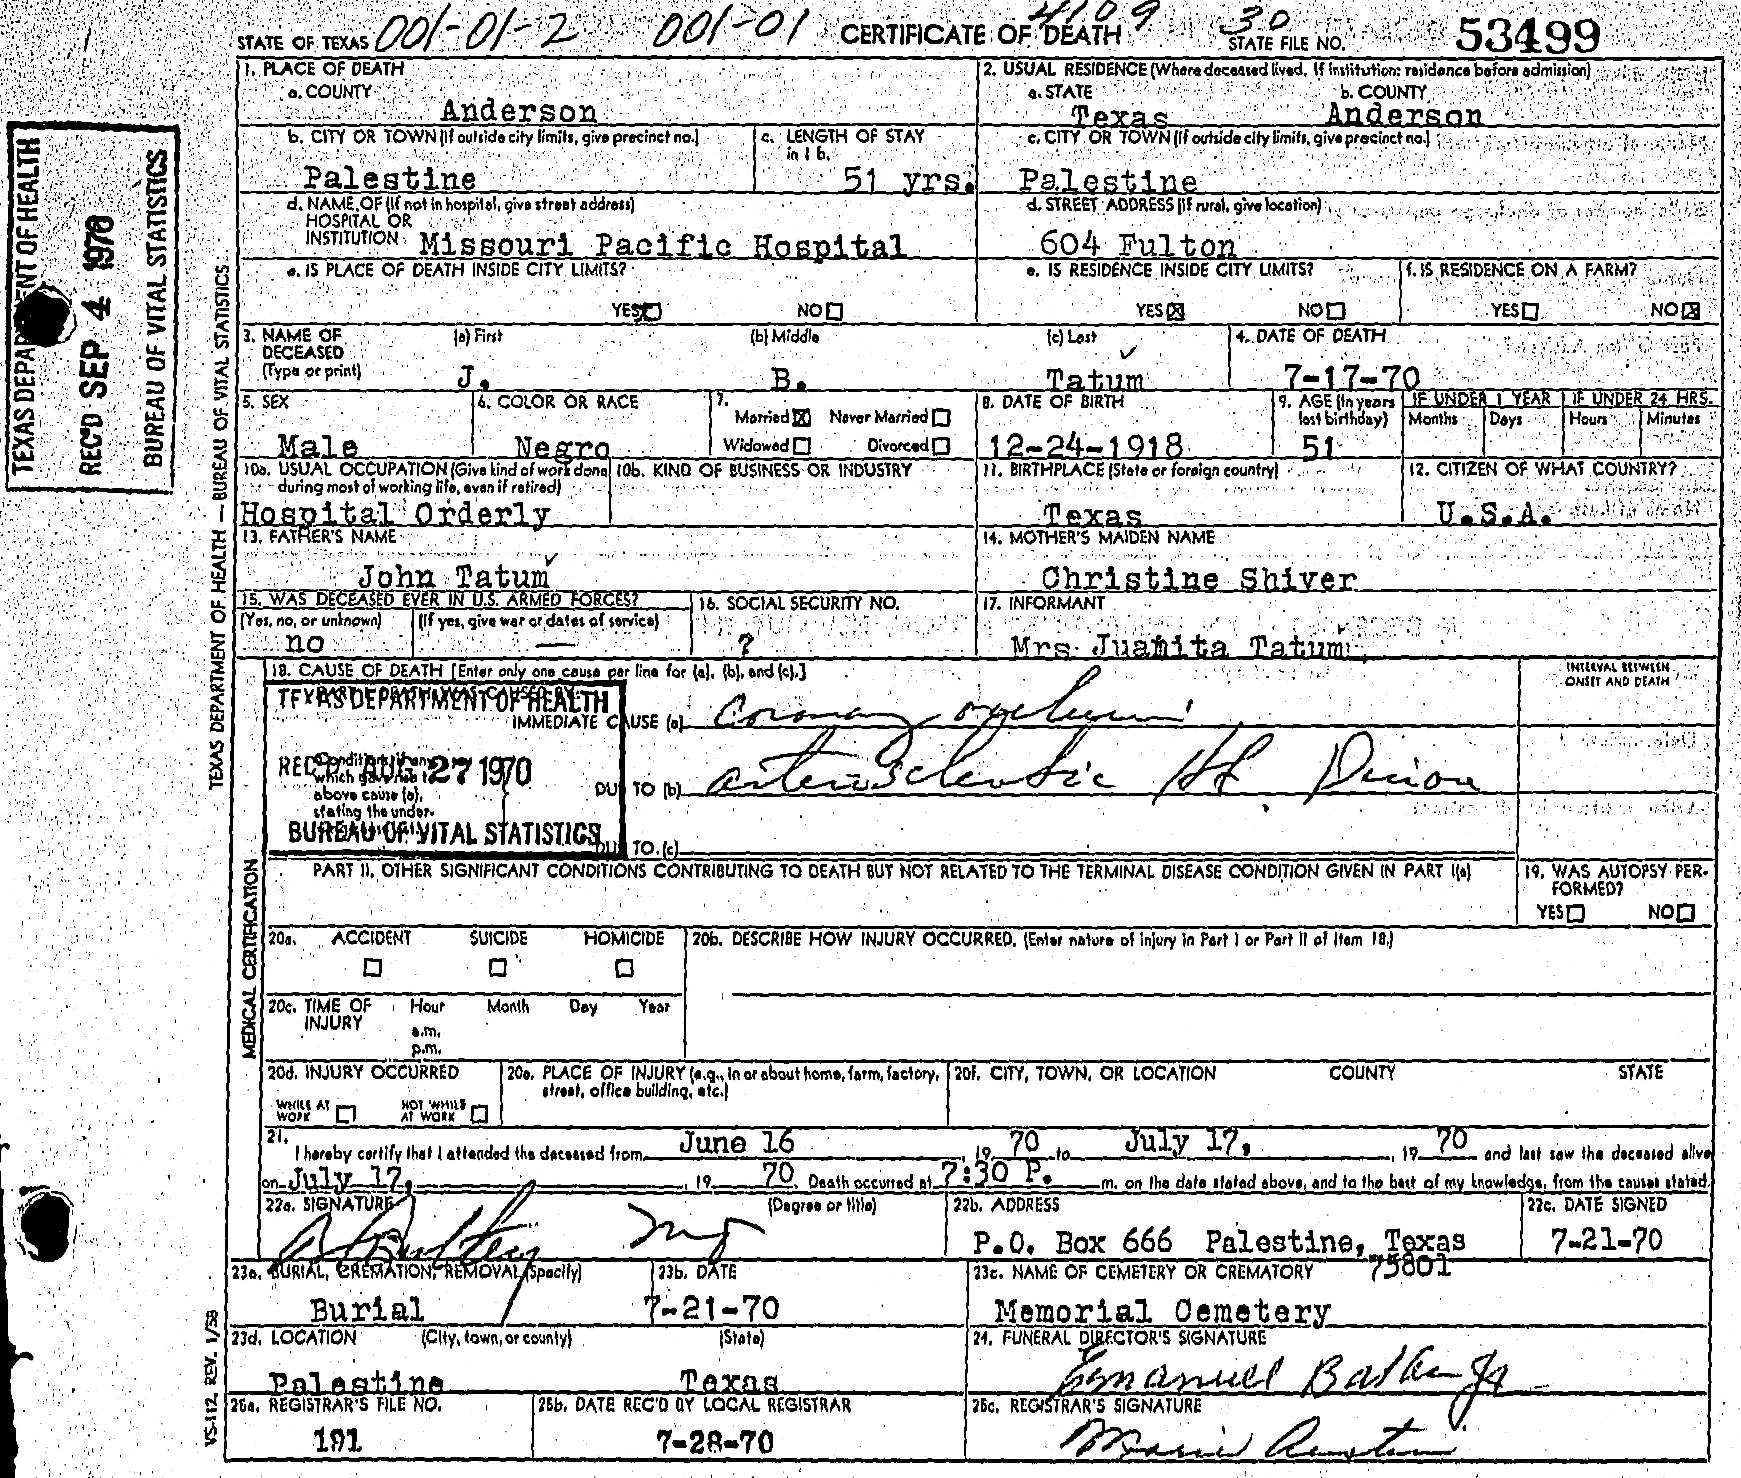 STATE OF TEXAS 001-01-2 001-01 CERTIFICATE OF DEATH 4109 30 STATE FILE NO. 53499
1. PLACE OF DEATH
a. COUNTY
Anderson
2. USUAL RESIDENCE (Where deceased lived. If institution: residence before admission)
a. STATE b. COUNTY
Texas Anderson
b. CITY OR TOWN (If outside city limits, give precinct no.)
Palestine
c. LENGTH OF STAY
in 1 b.
51 yrs.
c. CITY OR TOWN (If outside city limits, give precinct no.)
Palestine
d. NAME OF (If not in hospital, give street address)
HOSPITAL OR
INSTITUTION Missouri Pacific Hospital
d. STREET ADDRESS (If rural, give location)
604 Fulton
e. IS PLACE OF DEATH INSIDE CITY LIMITS?
YES☒ NO☐
e. IS RESIDENCE INSIDE CITY LIMITS?
YES☒ NO☐
f. IS RESIDENCE ON A FARM?
YES☐ NO☒
3. NAME OF
DECEASED
(Type or print)
(a) First (b) Middle (c) Last
J. B. Tatum
4. DATE OF DEATH
7-17-70
5. SEX
Male
6. COLOR OR RACE
Negro
7.
Married☒ Never Married☐
Widowed☐ Divorced☐
8. DATE OF BIRTH
12-24-1918
9. AGE (In years
last birthday)
51
IF UNDER 1 YEAR IF UNDER 24 HRS.
Months Days Hours Minutes
10a. USUAL OCCUPATION (Give kind of work done
during most of working life, even if retired)
Hospital Orderly
10b. KIND OF BUSINESS OR INDUSTRY
11. BIRTHPLACE (State or foreign country)
Texas
12. CITIZEN OF WHAT COUNTRY?
U.S.A.
13. FATHER'S NAME
John Tatum
14. MOTHER'S MAIDEN NAME
Christine Shiver
15. WAS DECEASED EVER IN U.S. ARMED FORCES?
(Yes, no, or unknown) (If yes, give war or dates of service)
no —
16. SOCIAL SECURITY NO.
?
17. INFORMANT
Mrs Juanita Tatum
18. CAUSE OF DEATH [Enter only one cause per line for (a), (b), and (c).]
INTERVAL BETWEEN
ONSET AND DEATH
PART I. DEATH WAS CAUSED BY:
IMMEDIATE CAUSE (a) Coronary
Conditions, if any,
which gave rise to
above cause (a),
stating the under-
DUE TO (b) arteriosclerotic Ht.
DUE TO (c)
TEXAS DEPARTMENT OF HEALTH
REC'D AUG 27 1970
BUREAU OF VITAL STATISTICS
PART II. OTHER SIGNIFICANT CONDITIONS CONTRIBUTING TO DEATH BUT NOT RELATED TO THE TERMINAL DISEASE CONDITION GIVEN IN PART I(a)
19. WAS AUTOPSY PER-
FORMED?
YES☐ NO☐
20a. ACCIDENT SUICIDE HOMICIDE
☐ ☐ ☐
20b. DESCRIBE HOW INJURY OCCURRED. (Enter nature of injury in Part I or Part II of Item 18.)
20c. TIME OF
INJURY
Hour Month Day Year
a.m.
p.m.
20d. INJURY OCCURRED
WHILE AT
WORK ☐
NOT WHILE
AT WORK ☐
20e. PLACE OF INJURY (e.g., in or about home, farm, factory,
street, office building, etc.)
20f. CITY, TOWN, OR LOCATION COUNTY STATE
21.
I hereby certify that I attended the deceased from June 16, 19 70 to July 17, 19 70 and last saw the deceased alive
on July 17, 19 70. Death occurred at 7:30 P. m. on the date stated above, and to the best of my knowledge, from the causes stated.
22a. SIGNATURE (Degree or title)
MD
22b. ADDRESS
P.O. Box 666 Palestine, Texas
75801
22c. DATE SIGNED
7-21-70
23a. BURIAL, CREMATION, REMOVAL (Specify)
Burial
23b. DATE
7-21-70
23c. NAME OF CEMETERY OR CREMATORY
Memorial Cemetery
23d. LOCATION (City, town, or county) (State)
Palestine Texas
24. FUNERAL DIRECTOR'S SIGNATURE
Emanuel Jr
25a. REGISTRAR'S FILE NO.
191
25b. DATE REC'D BY LOCAL REGISTRAR
7-28-70
25c. REGISTRAR'S SIGNATURE
Marie
TEXAS DEPARTMENT OF HEALTH
REC'D SEP 4 1970
BUREAU OF VITAL STATISTICS
TEXAS DEPARTMENT OF HEALTH — BUREAU OF VITAL STATISTICS
MEDICAL CERTIFICATION
VS-112 REV. 1/58